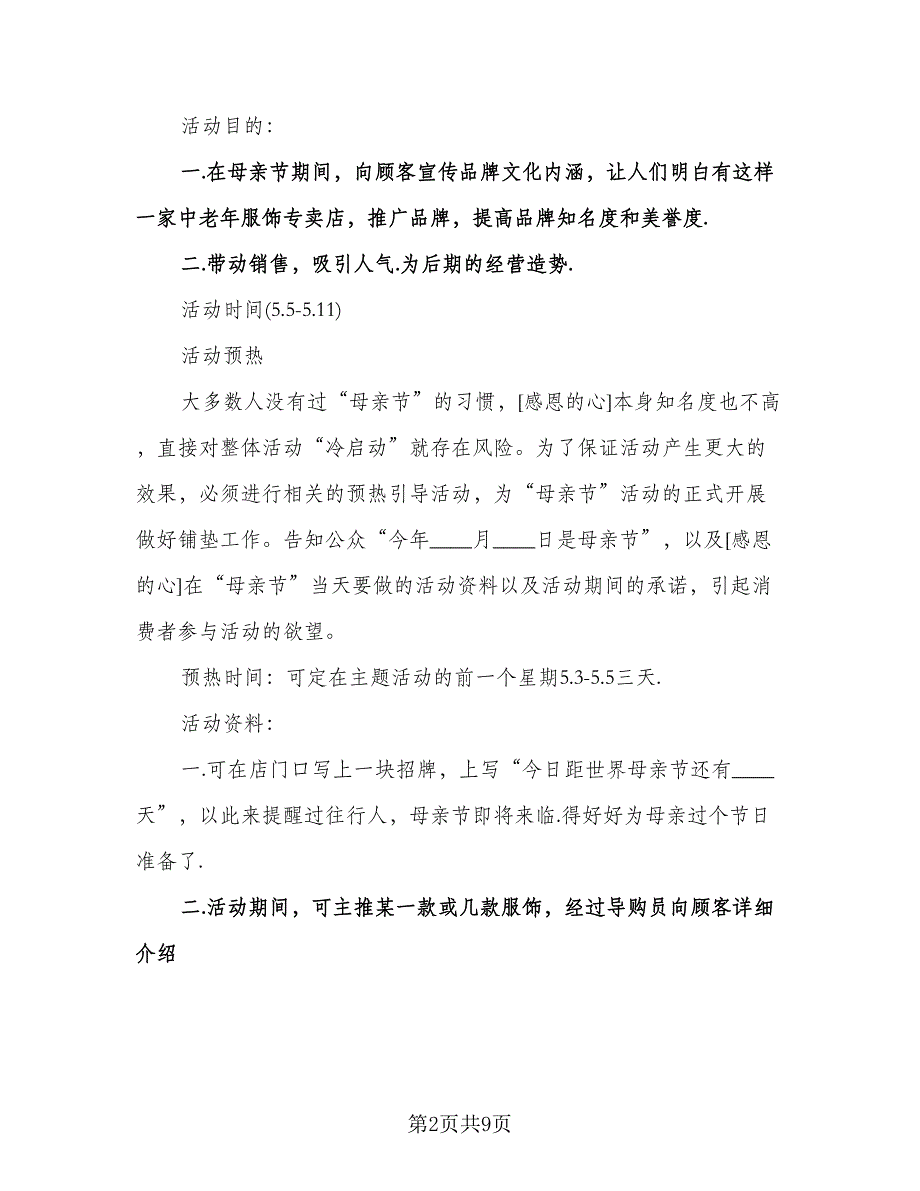 活动目的：
一.在母亲节期间，向顾客宣传品牌文化内涵，让人们明白有这样
一家中老年服饰专卖店，推广品牌，提高品牌知名度和美誉度.
二.带动销售，吸引人气.为后期的经营造势.
活动时间(5.5-5.11)
活动预热
大多数人没有过“母亲节”的习惯，[感恩的心]本身知名度也不高
，直接对整体活动“冷启动”就存在风险。为了保证活动产生更大的
效果，必须进行相关的预热引导活动，为“母亲节”活动的正式开展
做好铺垫工作。告知公众“今年____月____日是母亲节”，以及[感恩
的心]在“母亲节”当天要做的活动资料以及活动期间的承诺，引起消
费者参与活动的欲望。
预热时间：可定在主题活动的前一个星期5.3-5.5三天.
活动资料：
一.可在店门口写上一块招牌，上写“今日距世界母亲节还有____
天”，以此来提醒过往行人，母亲节即将来临.得好好为母亲过个节日
准备了.
二.活动期间，可主推某一款或几款服饰，经过导购员向顾客详细
介绍
第2页共9页